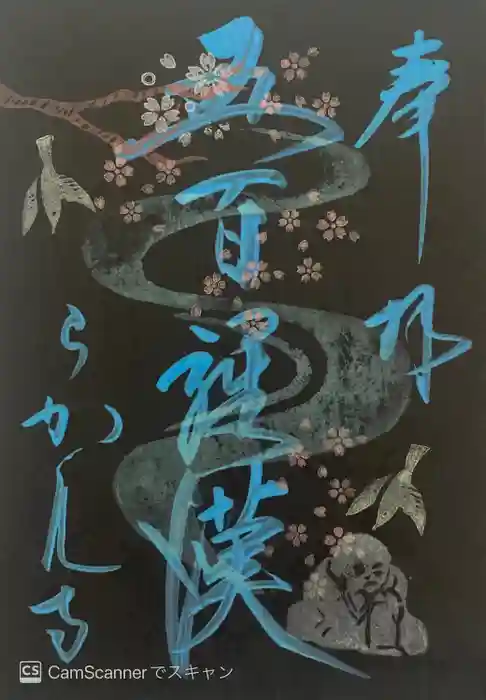 奉拝
五百羅漢
らかん寺
CamScannerでスキャン